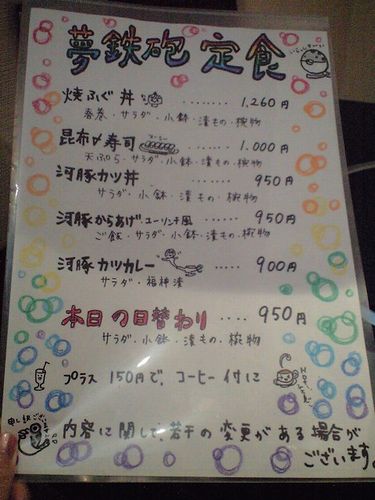 夢鉄砲 定食
焼ふぐ丼 ‥‥‥‥ 1,260円
春巻・サラダ・小鉢・漬もの・椀物
昆布〆寿司 ‥‥‥ 1,000円
天ぷら・サラダ・小鉢・漬もの・椀物
河豚カツ丼 ‥‥‥ 950円
サラダ・小鉢・漬もの・椀物
河豚からあげユーリンチ風 ‥‥‥ 950円
ご飯・サラダ・小鉢・漬もの・椀物
河豚カツカレー ‥‥ 900円
サラダ・福神漬
本日の日替わり ‥‥ 950円
サラダ・小鉢・漬もの・椀物
プラス 150円で、コーヒー付に
内容に関して、若干の変更がある場合が
ございます。